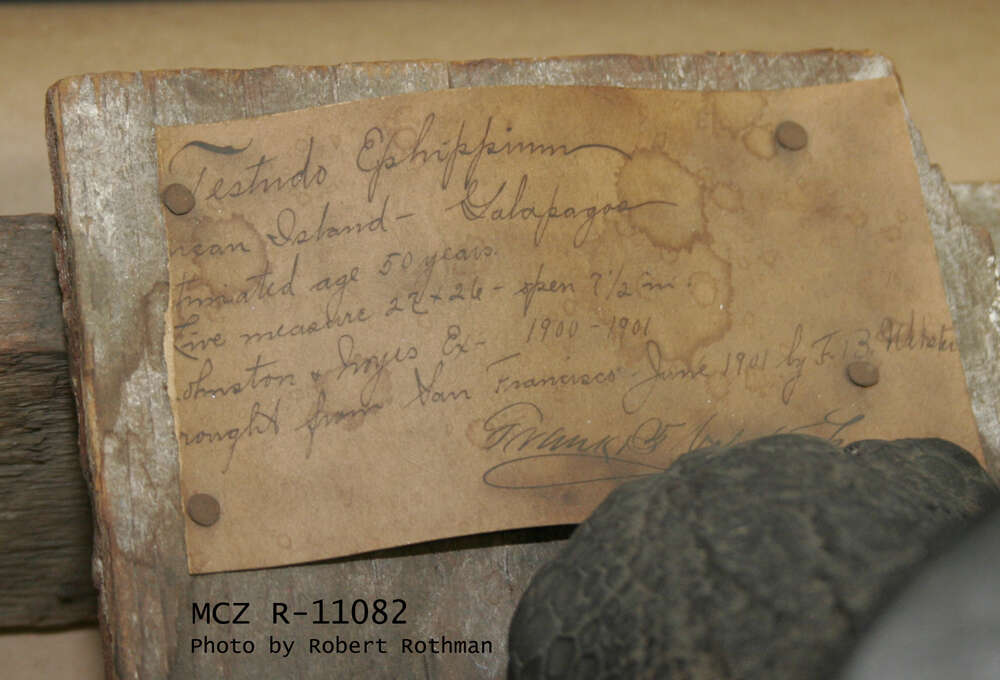 Testudo Ephippium
ncan Island - Galapagos
timated age 50 years.
Live measure 27 x 26 - open 7 1/2 in.
ohnston & Ex- 1900-1901
rought from San Francisco June 1901 by F. B. Webster
Frank B.
MCZ R-11082
Photo by Robert Rothman